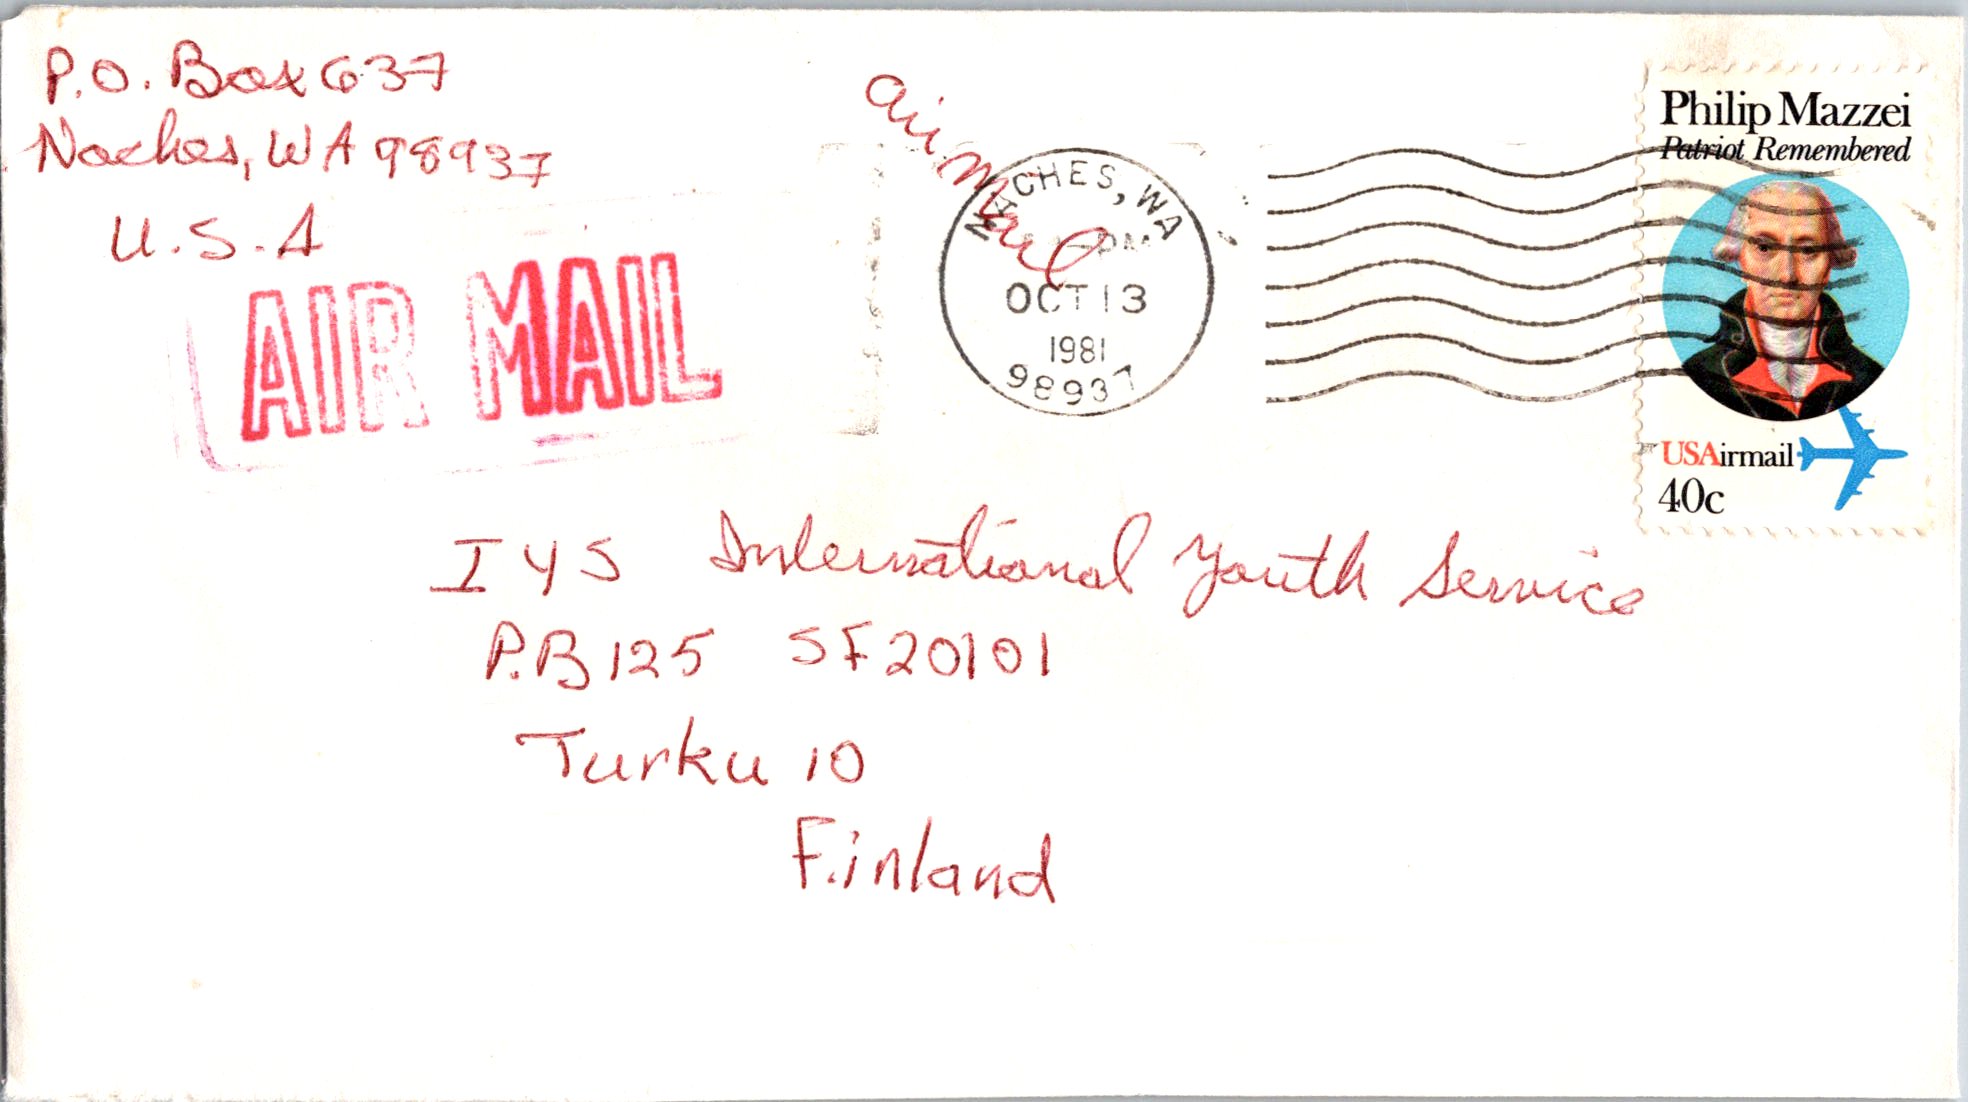 P.O. Box 637
Naches, WA 98937
U.S.A
AIR MAIL
Air Mail
NACHES, WA
PM
OCT 13
1981
98937
Philip Mazzei
Patriot Remembered
USAirmail
40c
IYS International Youth Service
P.B 125 SF 20101
Turku 10
Finland